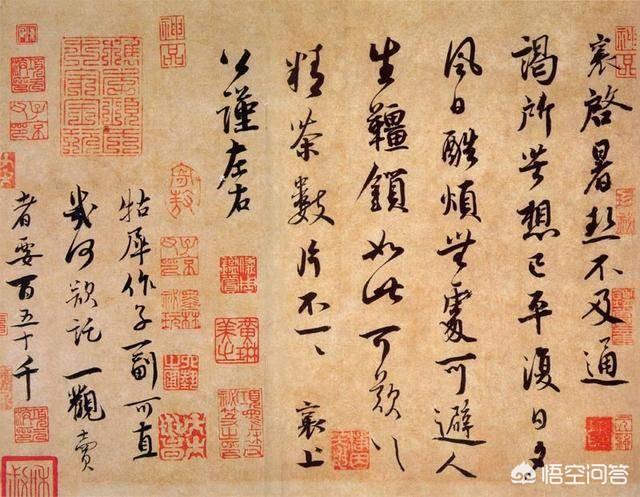 襄啓暑熱不及通
謁所苦想已平復日夕
風日酷煩無處可避人
生韁鎖如此可歎〻
精茶數片不一〻 襄上
公謹左右
牯犀作子一副可直
幾何欲託一觀賣
者要百五十千
神品
悟空问答